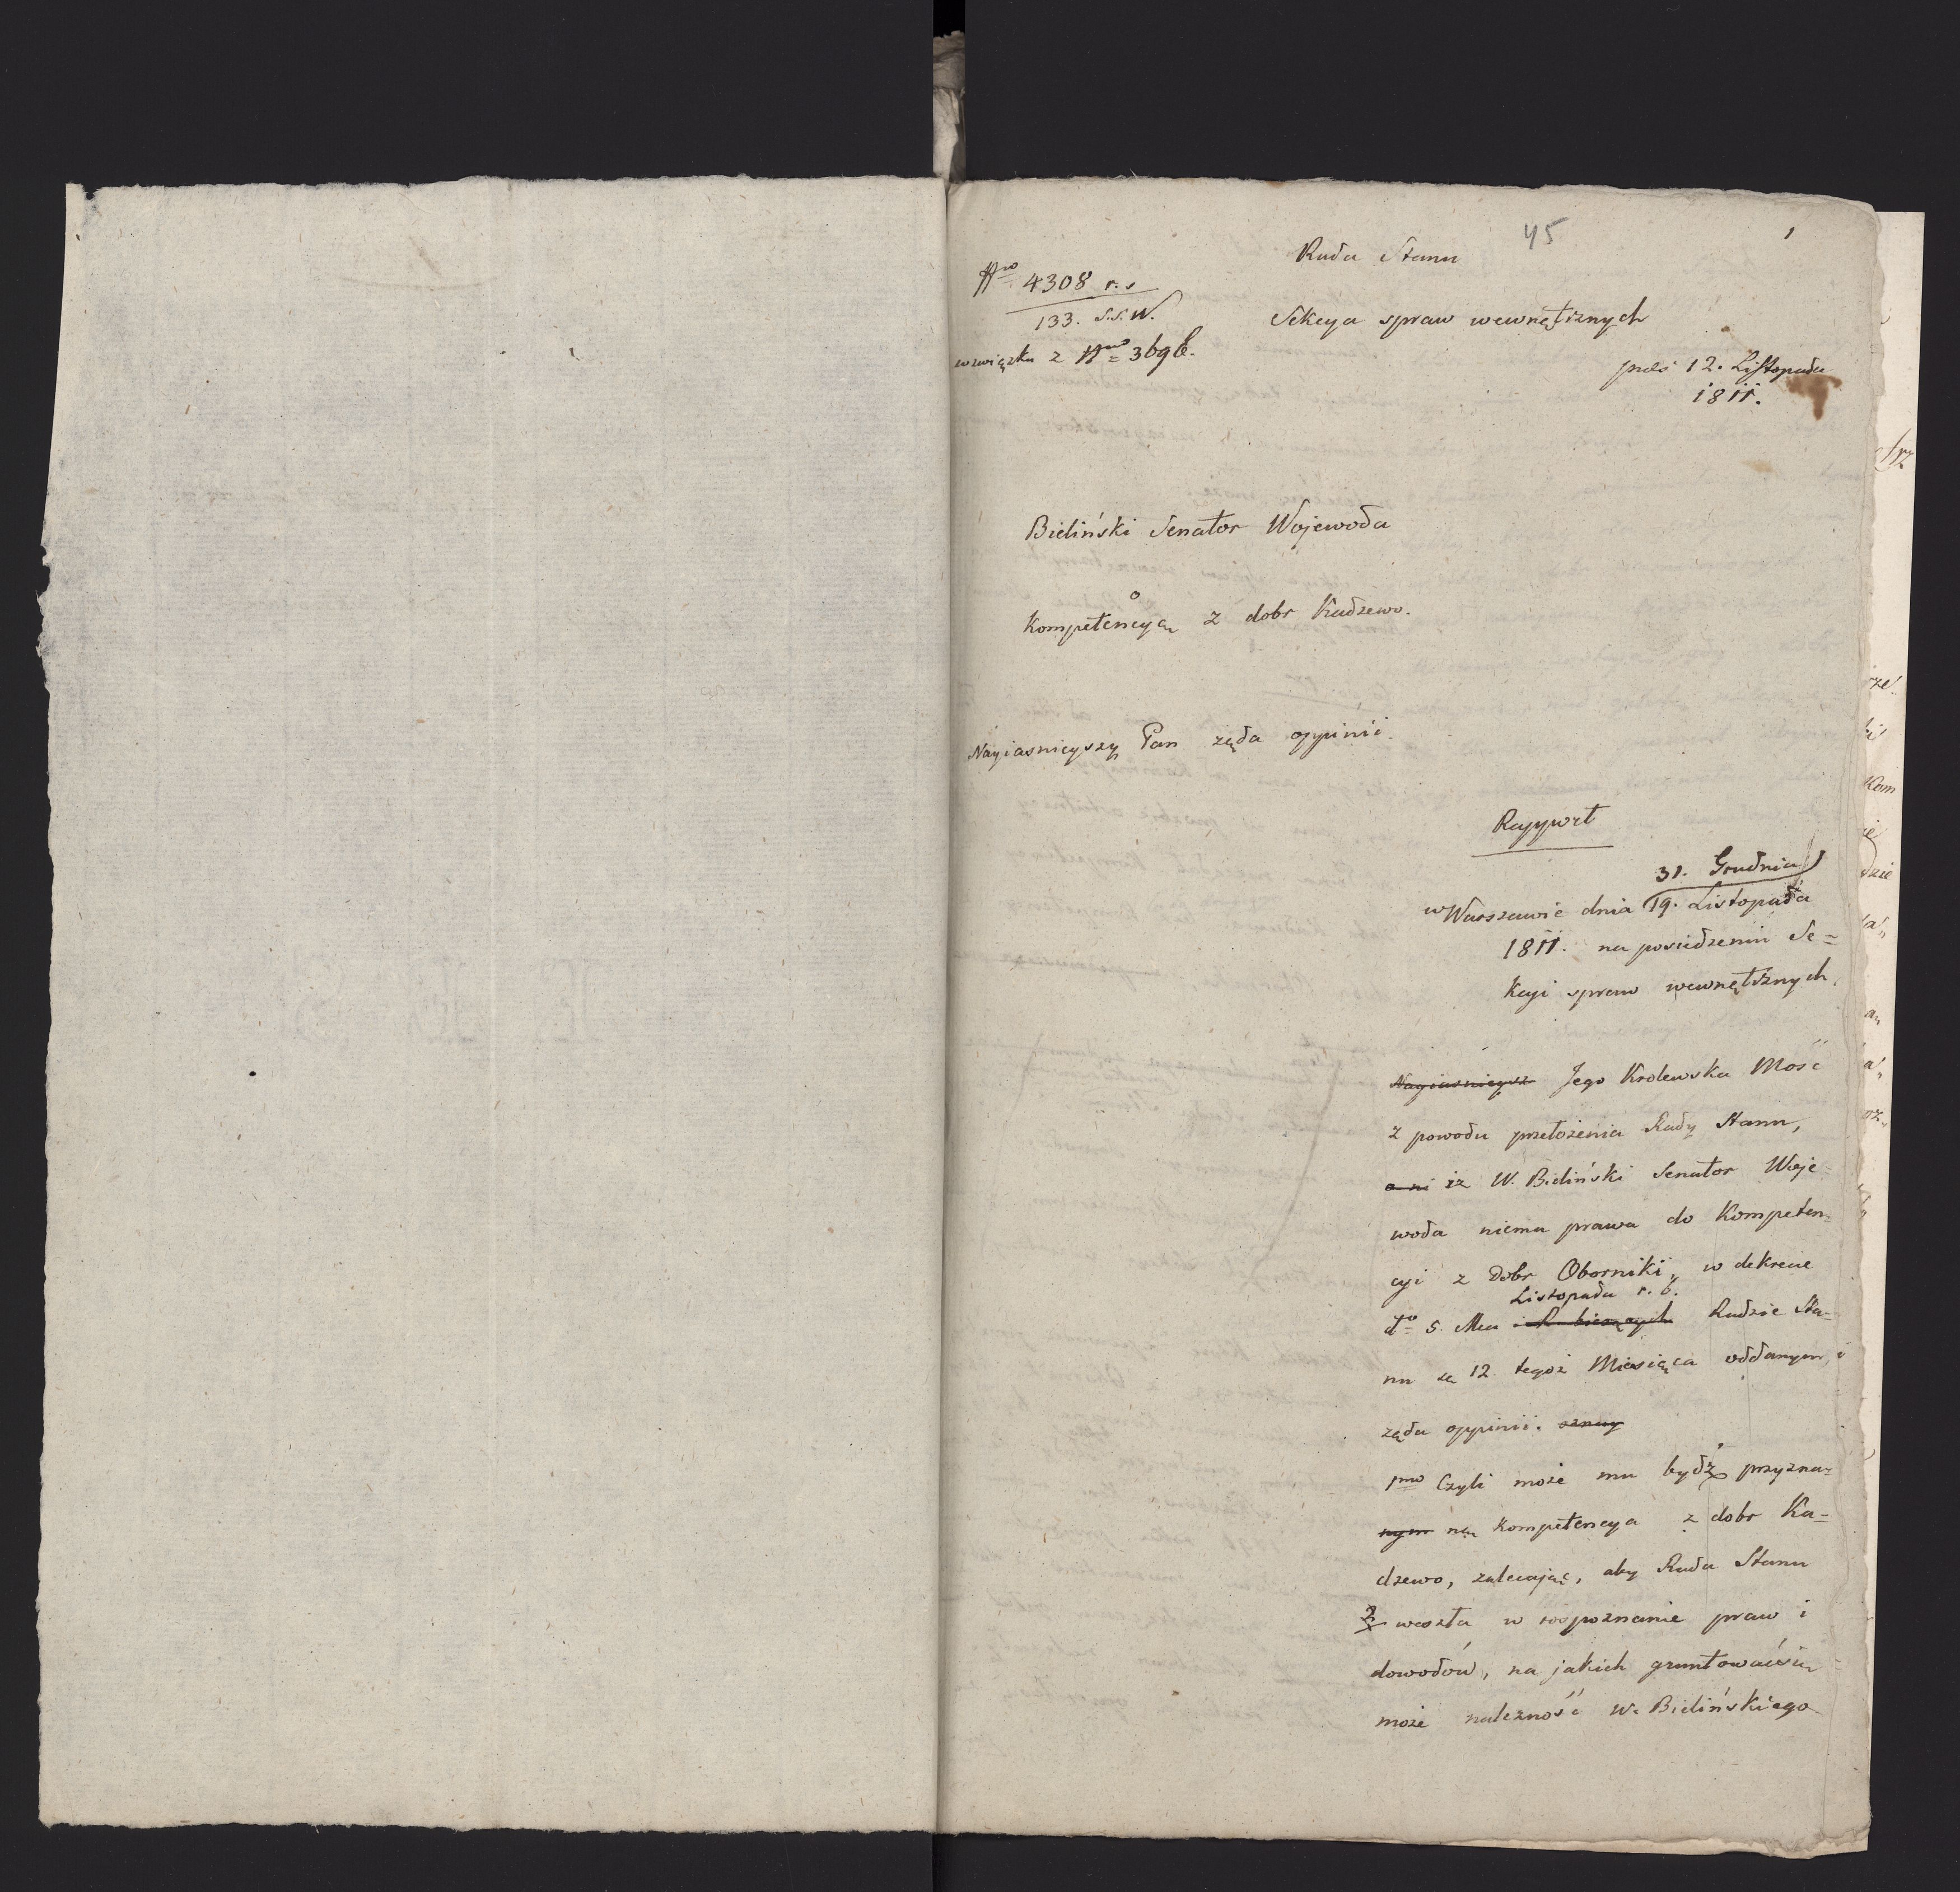 45
1
Rada Stanu
Nro 4308 r. s
133. S. S. W.
w związku z Nro 3698.
Sekcya spraw wewnętrznych
præs 12. Listopada
1811.
Bieliński Senator Wojewoda
o
Kompetencyą z dobr Kadzewo.
Nayiasnieyszy Pan ząda oppinii.
Rapport
31. Grudnia
w Warszawie dnia 19. Listopada
1811. na posiedzeniu Se=
kcyi spraw wewnętrznych.
Nayiasnieysz Jego Krolewska Mość
z powodu przełożenia Rady Stanu,
iz W. Bieliński Senator Woje=
woda niema prawa do Kompeten=
cyi z Dobr Oborniki, w dekrecie
Listopada r. b.
do 5. Mca Radzie Sta=
nu 12 tegoż Miesiąca oddanym,
ząda oppinii.
1mo Czyli może mu bydź przyzna=
nym na Kompetencya z dobr Ka=
dzewo, zalecając, aby Rada Stanu
weszła w rospoznanie praw i
dowodów, na jakich gruntować się
może należność W. Bielińskiego